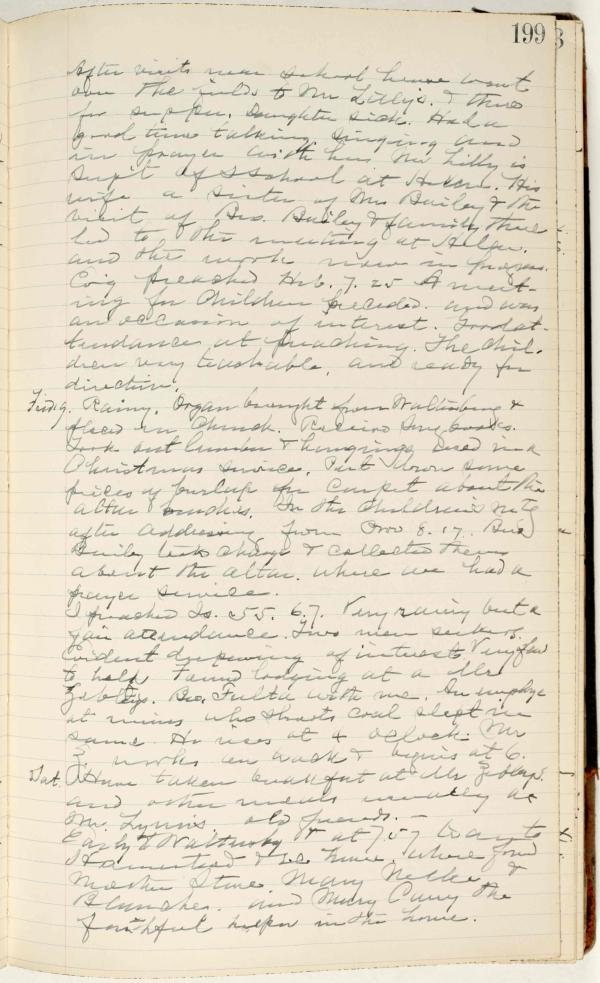 199
After visits near school house went
over the fields to Mr Lilly's & there
for supper. Daughter sick. Had a
good time talking singing and
in prayer with her. Mr Lilly is
Supt of S School at His
wife a sister of Mrs Bailey & the
visit of Bro. Bailey & family there
led to the meeting at
and the work now in progress.
preached Heb. 7.25 A meet-
ing for Children preceded and was
an occasion of interest. Good at-
tendance at preaching. The chil-
dren very teachable, and ready for
direction.
Frid 9. Rainy. Organ brought from &
placed in Church. song books.
Took out lumber & hangings used in a
Christmas service. Put down some
pieces of burlap for carpet about the
altar In the Children's mtg
after addressing from Prov 8.17. Bro
Bailey took charge & collected them
about the altar. where we had a
prayer service.
I preached Is. 55. 6.7. Very rainy but a
fair attendance. Two men seekers.
Evident deepening of interest. Very few
to help. Found lodging at a Mr
Bro. Fulta with me. An employe
at mines who shoots coal slept in
same. He rises at 4 oclock. Mr
Z. works on bank & begins at 6.
Sat. Have taken breakfast at Mr
and other meals usually at
Mr. Lynn's. old friends. —
Early to at 7.57 to
Homestead & to home, where find
Mother Steve. Mary &
Blanche. and Mary Curry the
faithful helper in the home.